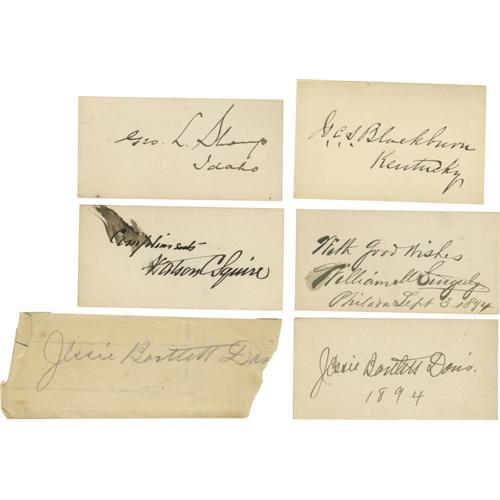 Geo. L. Shoup
Idaho
Jo. C. S. Blackburn
Kentucky
Compliments
Watson C Squire
With Good Wishes
William M Singerly
Philada Sept 3. 1894
Jessie Bartlett Davis
Jessie Bartlett Davis.
1894